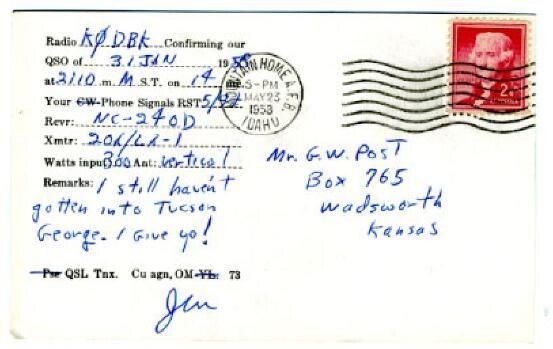 Radio KØDBK Confirming our
QSO of 31 JAN 1958
at 2110 m. M.S.T. on 14 mc.
Your CW-Phone Signals RST 5/9
Rcvr: NC-240D
Xmtr: 20A/LA-1
Watts input 300 Ant: vertical
Remarks: I still haven't
gotten into Tucson
George. I give yo!
Pse QSL Tnx. Cu agn, OM-YL: 73
MOUNTAIN HOME A.F.B.
5-PM
MAY 23
1958
IDAHO
2¢
Mr. G. W. Post
Box 765
Wadsworth
Kansas